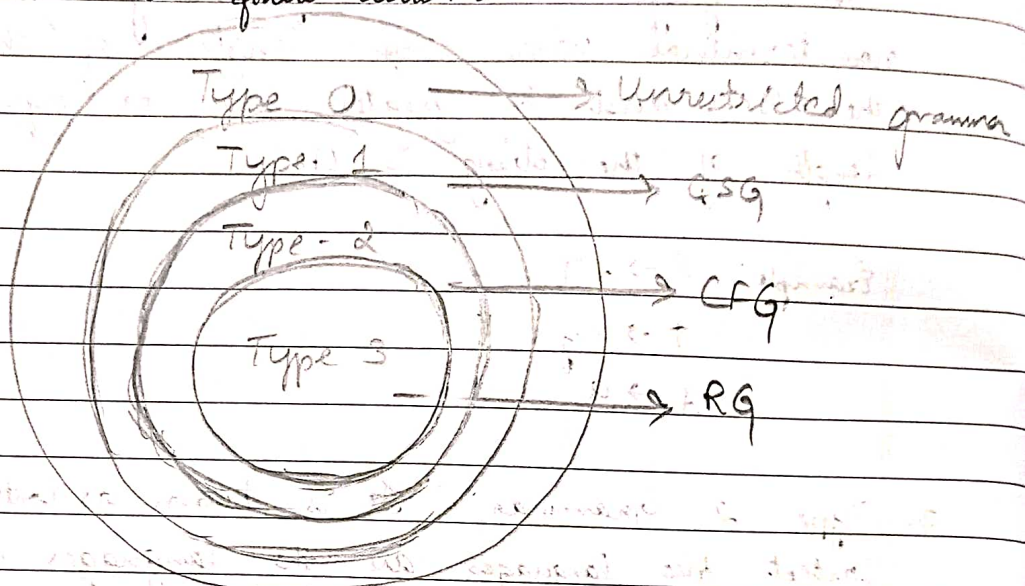 Type 0 → Unrestricted grammar
Type. 1 → CSG
Type - 2 → CFG
Type 3 → RG